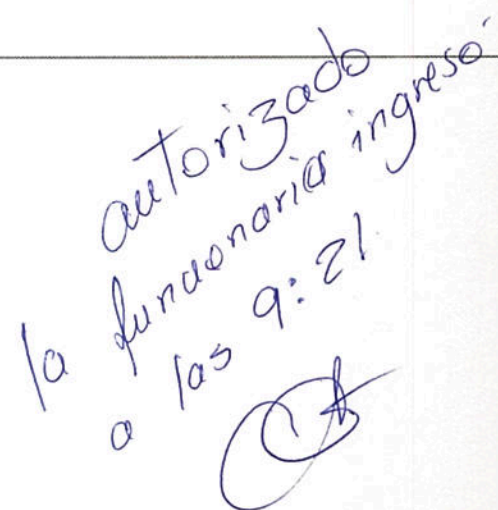 autorizado
la funcionaria ingresó
a las 9:21